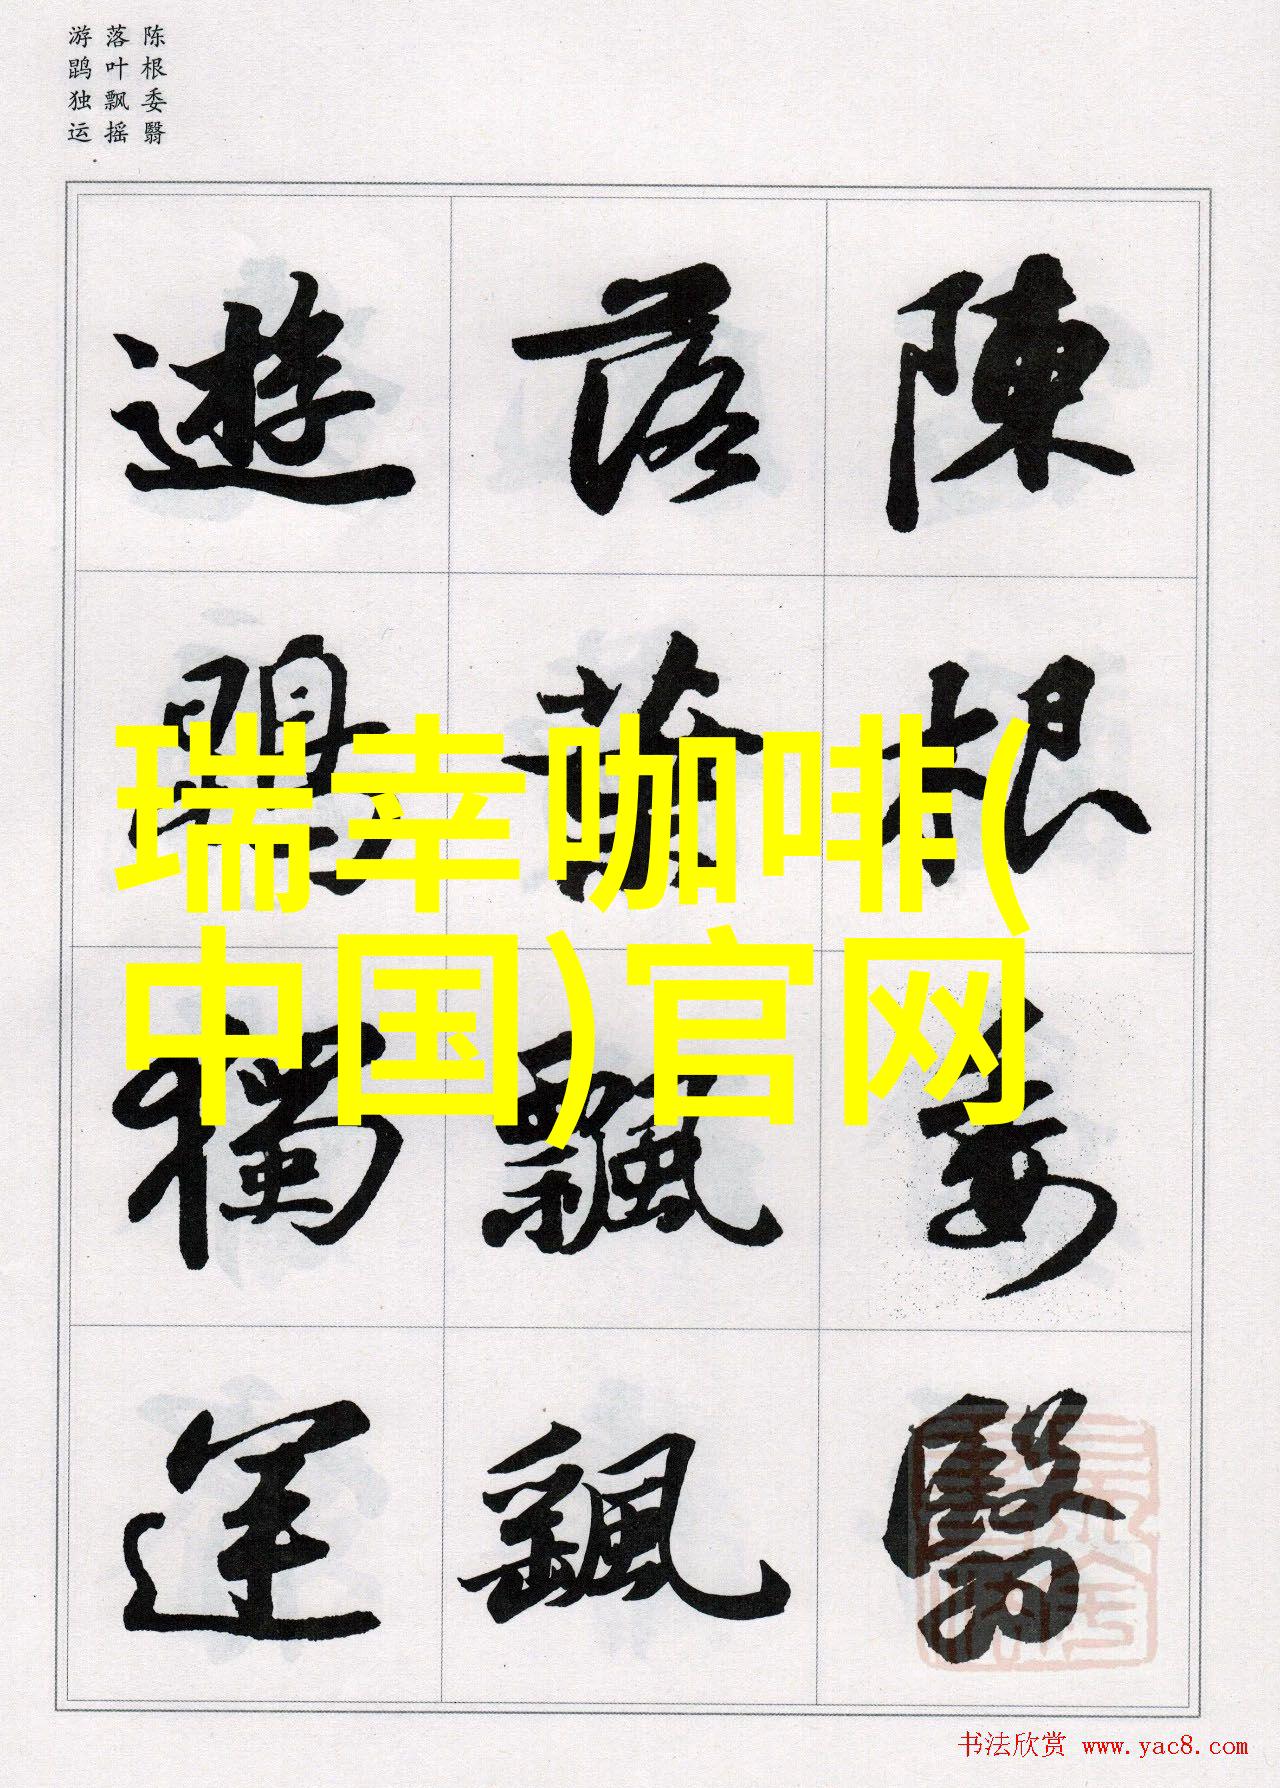 陈根委翳
落叶飘摇
游鹍独运
陳根委翳
落葉飄飖
遊鵾獨運
瑞幸咖啡(
中国)官网
书法欣赏 www.yac8.com